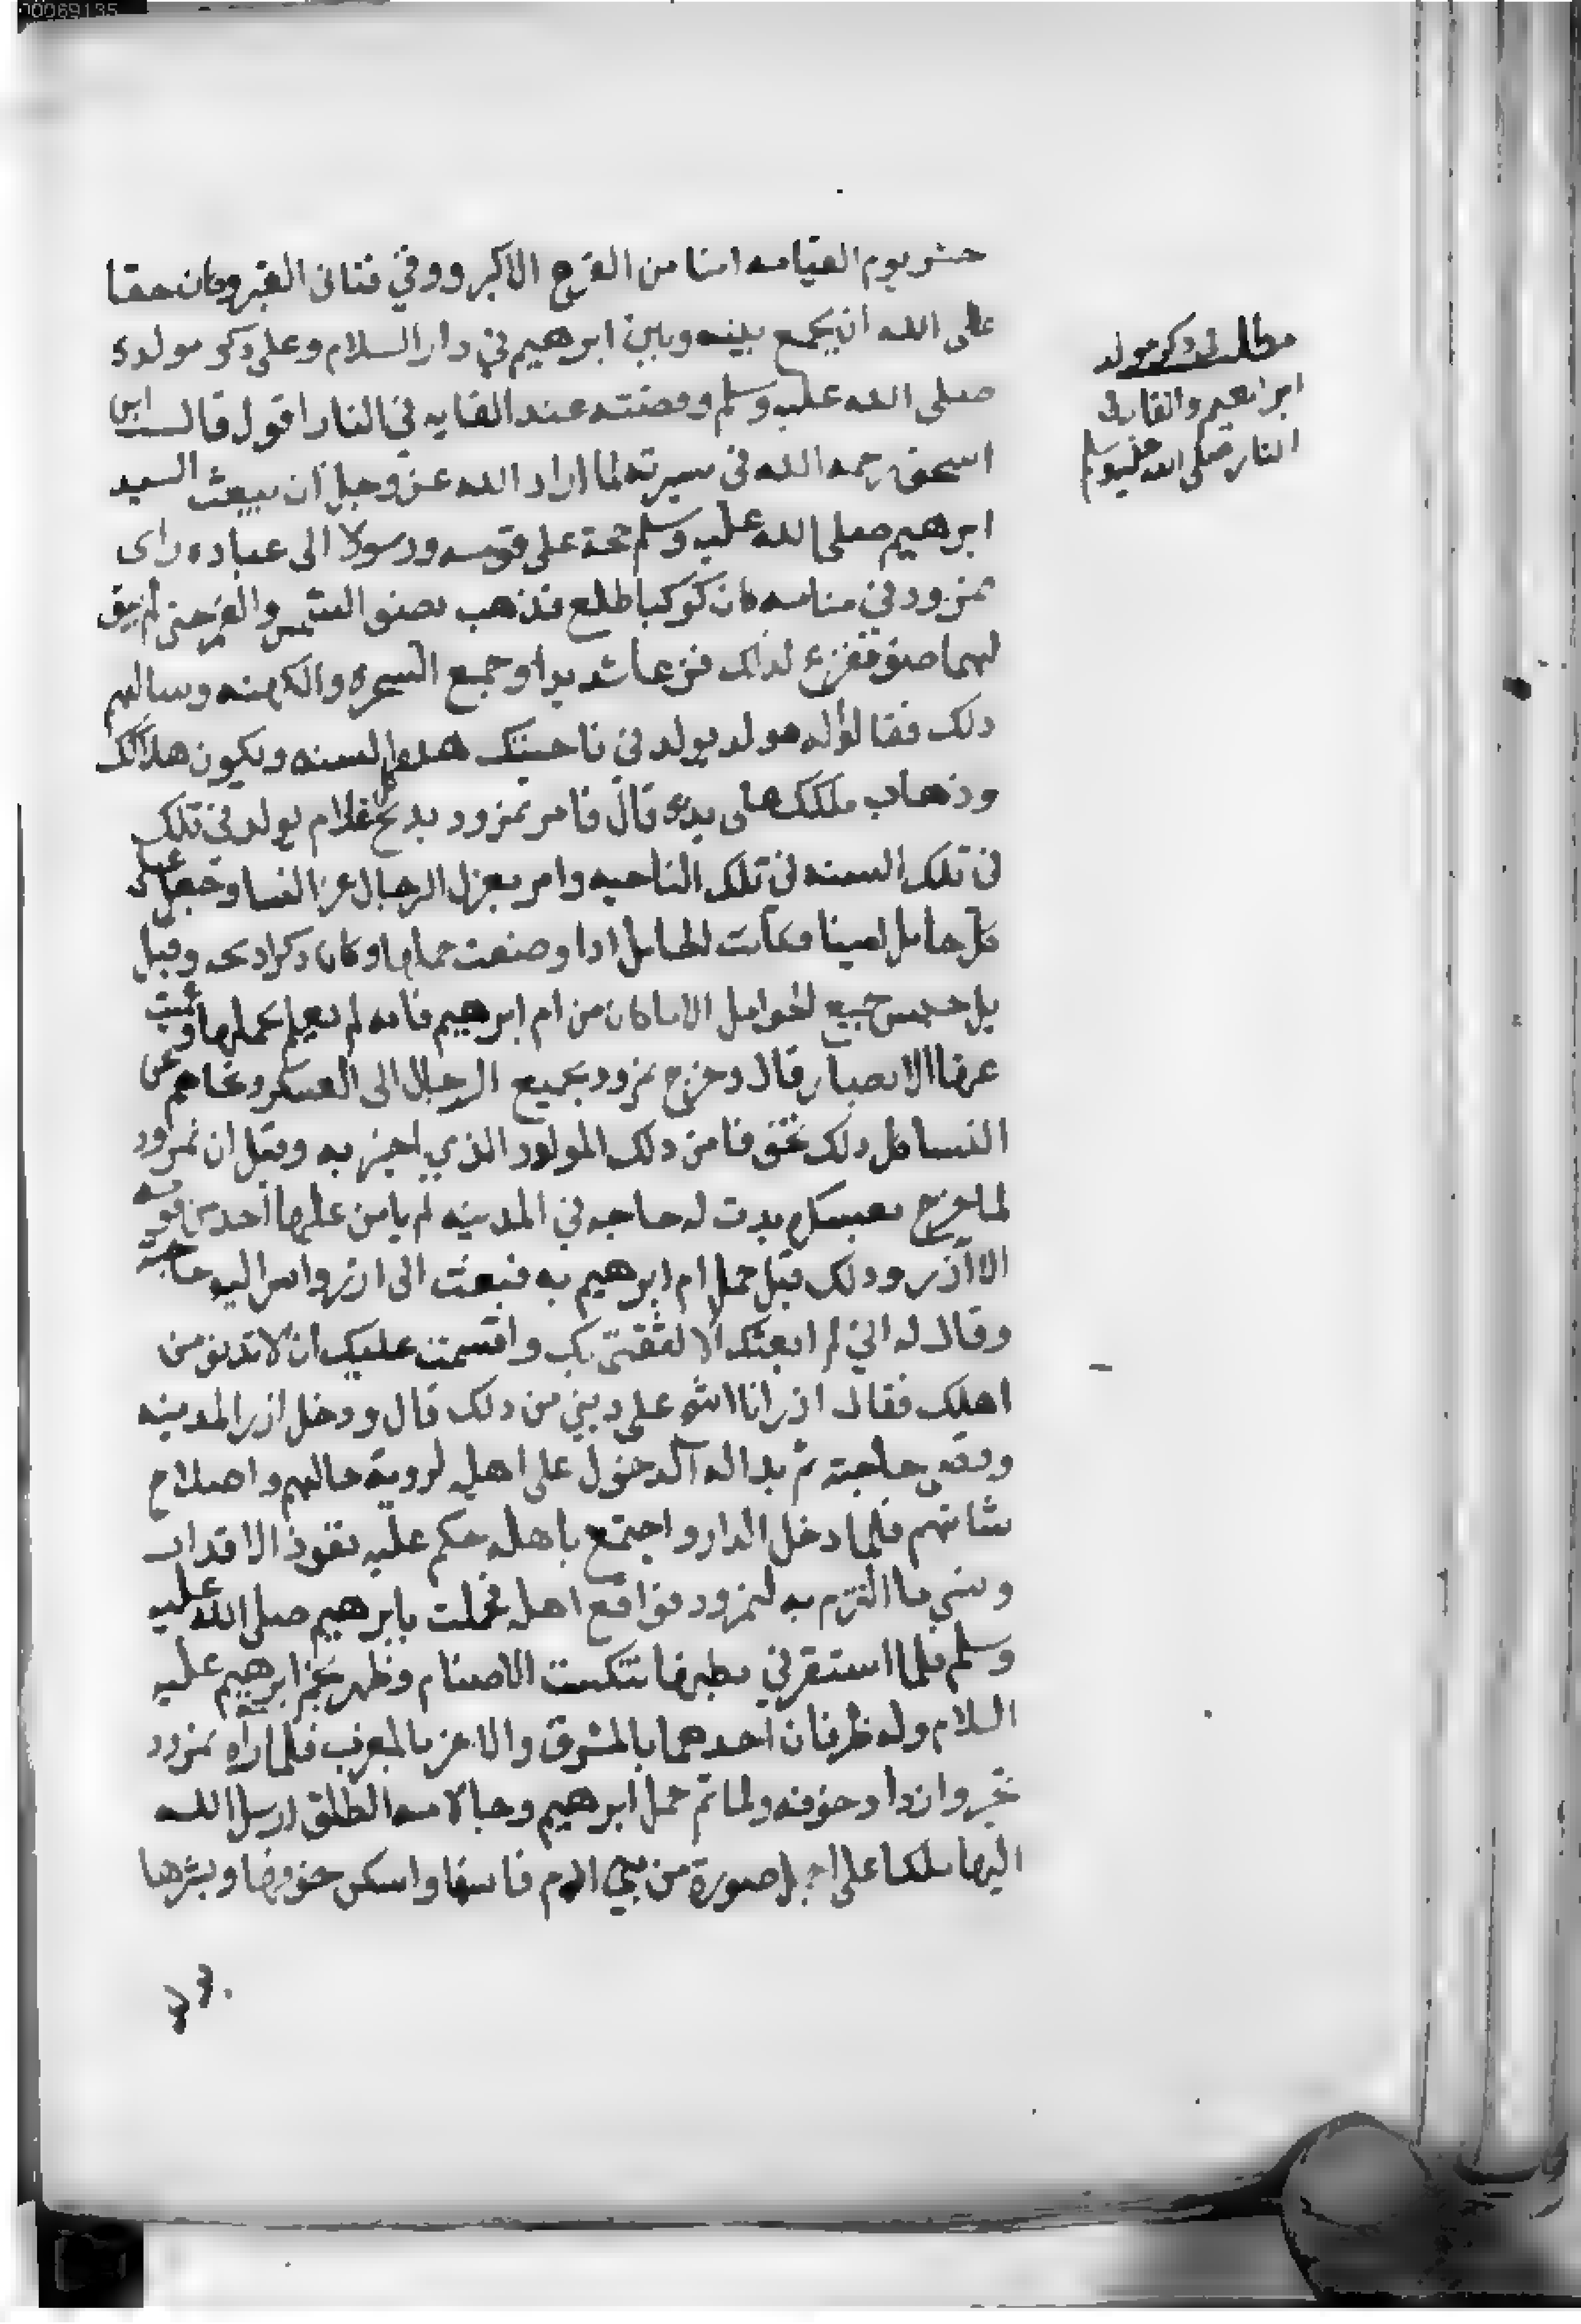 حشر يوم القيامه امنا من الفزع الاكبر ووقي فتاني القبر وكان حقا
على الله ان يجمع بينه وبين ابرهيم في دار السلام وعلى ذكر مولده
صلى الله عليه وسلم وقصته عند القايه في النار اقول قال ابن
اسحق رحمه الله في سيرته لما اراد الله عز وجل ان يبعث السيد
ابرهيم صلى الله عليه وسلم حجة على قومه ورسولا الى عباده راى
نمرود في منامه كان كوكبا طلع فذهب بضو الشمس والقمر حتى لم يبق
لهما ضو ففزع لذلك فزعا شديدا وجمع السحره والكهنه وسالهم
دلك فقالوا له مولد يولد في ناحيتك هده السنه ويكون هلاكك
وذهاب ملكك على يده قال فامر نمرود بدبح كل غلام يولد في تلك
في تلك السنه في تلك الناحيه وامر بعزل الرجال عن النسا وجعل على
كل حامل امينا فكانت الحامل ادا وضعت حملها وكان دكرا دبحه وقيل
بل حبس جميع الحوامل الا ما كان من ام ابرهيم فانه لم يعلم بحملها وعميت
عنها الابصار قال وخرج نمرود بجميع الرجال الى العسكر ونحاهم عن
النسا كل دلك تخوفا من دلك المولود الذي اخبر به وقيل ان نمرود
لما خرج بعسكره بدت له حاجه في المدينه لم يامن عليها احد من قومه
الا آزر ودلك قبل حمل ام ابرهيم به فبعث الى ازر واسر اليه حاجته
وقال له اني لم ابعثك الا لثقتي بك واقسمت عليك ان لا تدنو من
اهلك فقال ازر انا اشح على ديني من دلك قال ودخل ازر المدينه
وقضى حاجته ثم بدا له الدخول على اهله لروية حالهم واصلاح
شانهم فلما دخل الدار واجتمع باهله حكم عليه نفوذ الاقدار
ونسي ما التزم به لنمرود فواقع اهله فحملت بابرهيم صلى الله عليه
وسلم فلما استقر في بطنها تنكست الاصنام وظهر نجم ابرهيم عليه
السلام وله طرفان احدهما بالمشرق والاخر بالمغرب فلما راه نمرود
تحير وازداد خوفه ولما تم حمل ابرهيم وجا لامه الطلق ارسل الله
اليها ملكا على اجمل صورة من بني ادم فانسها واسكن خوفها وبشرها
مطلب في ذكر مولد
ابراهيم والقاه في
النار صلى الله عليه وسلم